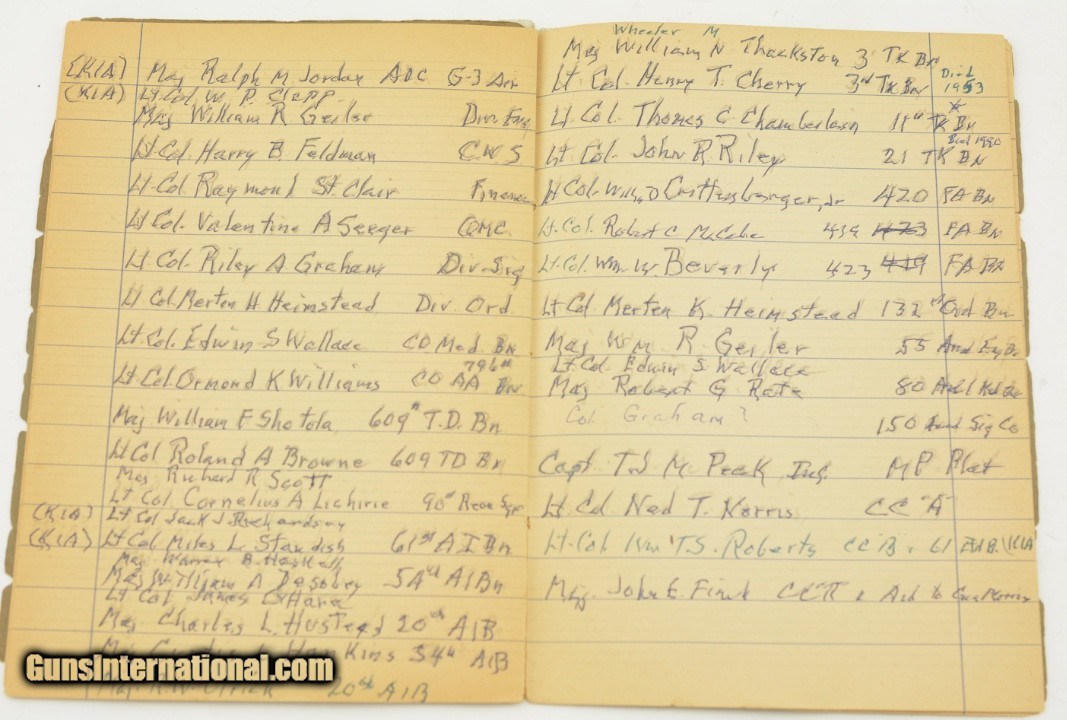 (KIA) Maj Ralph M Jordan ADC G-3 Air
(KIA) Lt. Col. W. P. Clapp
Maj William R Gerler Div. Eng.
Lt. Col. Harry B. Feldman C.W.S
Lt. Col. Raymond St. Clair Finance
Lt. Col. Valentine A Seeger QMC.
Lt. Col. Riley A. Graham Div. Sig
Lt. Col. Merten H. Heimstead Div. Ord.
Lt. Col. Edwin S Wallace CO Med. Bn
Lt. Col. Ormond K Williams CO 796th AA Bn.
Maj William F Shotola 609th T.D. Bn
Lt Col Roland A Browne 609 TD Bn
Maj Richard R Scott
Lt Col. Cornelius A Lichirie 90th Recon Sqn
(KIA) Lt Col Jack J. Richardson
(KIA) Lt Col. Miles L. Standish 61st A I Bn
Maj. Warren B. Haskell
Maj William A Desobry 54th AIBn
Lt Col James O'Hara
Maj Charles L. Hustead 20th AIB
Hankins 54th AIB
20th AIB
Wheeler M
Maj William N Thackston 3 TK Bn
Lt Col. Henry T. Cherry 3rd TK Bn Died 1953
Lt Col. Thomas C Chamberlain 11th TK Bn
Lt Col. John R Riley 21 TK BN Died 1990
Lt Col. Willis D Crittenberger, Jr 420 FA Bn
Lt. Col. Robert C McCabe 419 423 FA BN
Lt. Col. Wm. W Beverly 423 419 FA BN
Lt Col Merten K. Heimstead 132nd Ord Bn
Maj Wm R Gerler 55 Amd Eng Bn
Lt Col Edwin S Wallace
Maj Robert G Rate 80 Med
Col. Graham? 150 Amd Sig Co
Capt. T J M Peck Inf. MP Plat
Lt Col Ned T. Norris CC "A"
Lt. Col. Wm T. S. Roberts CC B 61 AIB. (KIA)
Maj. John E. Fink
GunsInternational.com